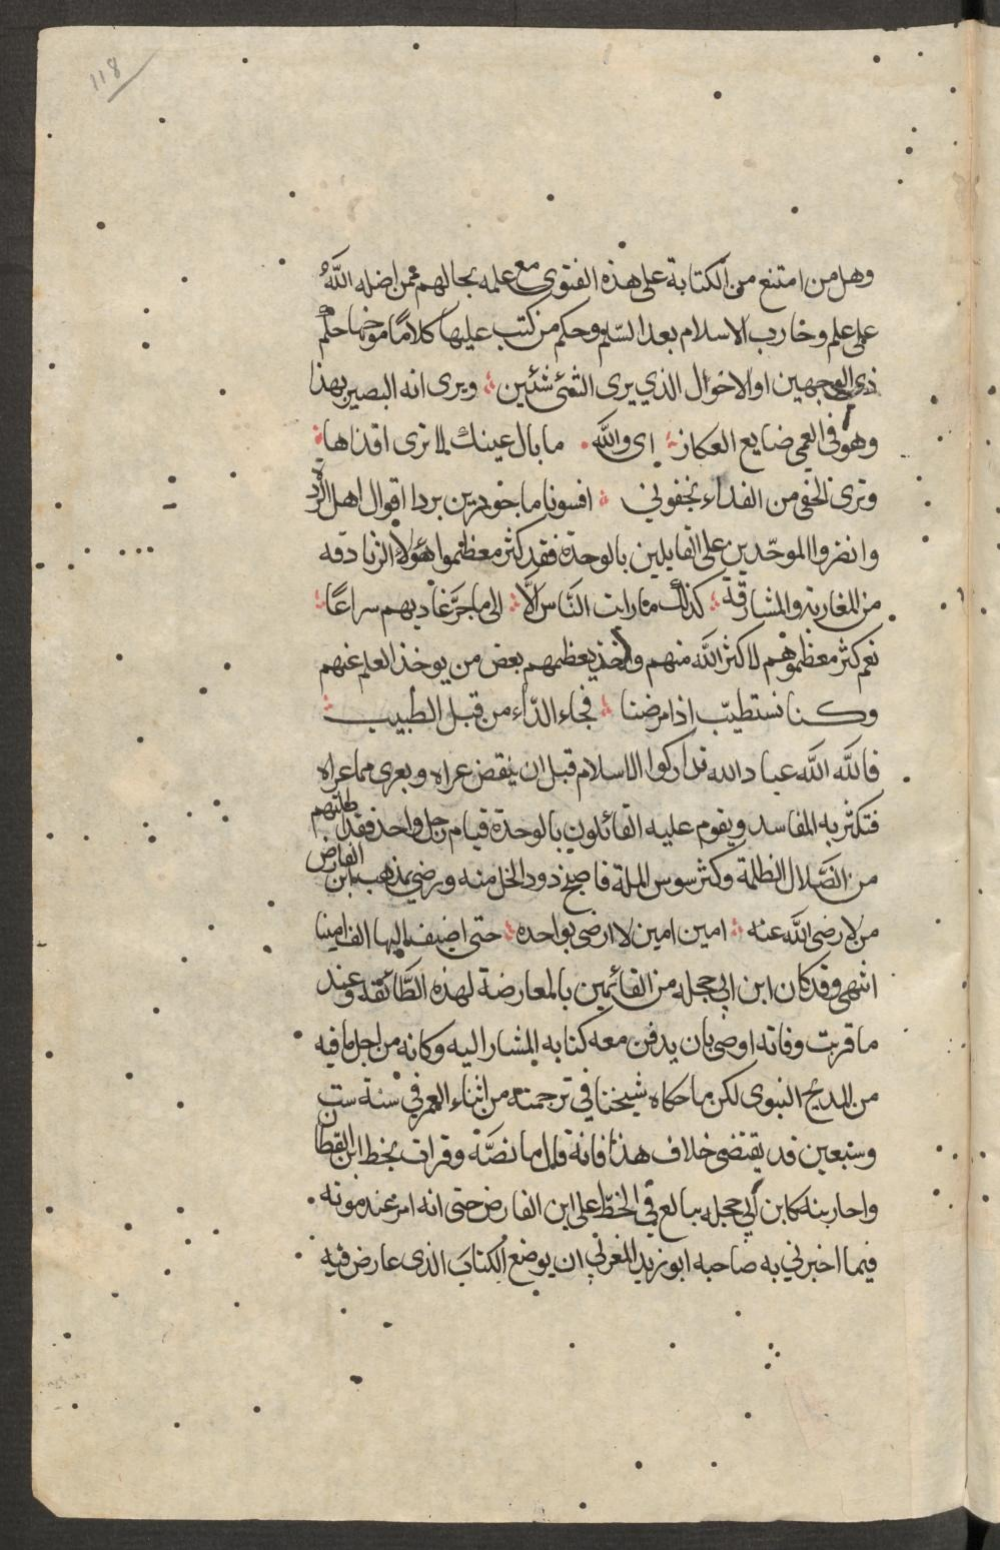 118
وهل من امتنع من الكتابة على هذه الفتوى مع علمه بحالهم ممن اضله الله
على علم وخارب الاسلام بعد السلم وحكم من كتب عليها كلاما موخما حكم
ذى الوجهين او الاخوال الذي يرى الشئ شئين ويرى انه البصير بهذا
وهو فى العمى ضايع العكاز اى والله ما بال عينك لا ترى اقذاها
وترى الخفى من القذاء بجفونى افسونا ماخوذين بردا اقوال اهل الردة
وانضروا الموحدين على القايلين بالوحدة فقد كثر معظموا هؤلاء الزنادقه
من المغاربة والمشارقة كذلك ما رات الناس الا الى ما جر غاديهم سراعا
نعم كثر معظموهم لا كثر الله منهم واخذ يعظمهم بعض من يوخذ العلم عنهم
وكنا نستطيب اذا مرضنا فجاء الداء من قبل الطبيب
فالله الله عباد الله تداركوا الاسلام قبل ان ينقض عراه ويعرى مما عراه
فتكثر به المفاسد ويقوم عليه القائلون بالوحدة قيام رجل واحد فقد
من الضلال الظلمة وكثر سوس الملة فاصبح دود الخل منه ورضى بمذهب ابن الفارض
من لا رضى الله عنه امين امين لا ارضى بواحده حتى اضيف اليها الف امينا
انتهى وقد كان ابن ابي حجله من القائمين بالمعارضة لهذه الطائفة وعند
ما قربت وفاته اوصى بان يدفن معه كتابه المشار اليه وكانه من اجل ما فيه
من المديح النبوى لكن ما حكاه شيخنا في ترجمته من انباء العمر في سنة ست
وسبعين قد يقتضى خلاف هذا فانه قال ما نصه وقرات بخط ابن القطان
واجازنيه كان ابن ابي حجله يبالغ في الحط على ابن الفارض حتى انه امر عند موته
فيما اخبرني به صاحبه ابو زيد المغربي ان يوضع الكتاب الذى عارض فيه